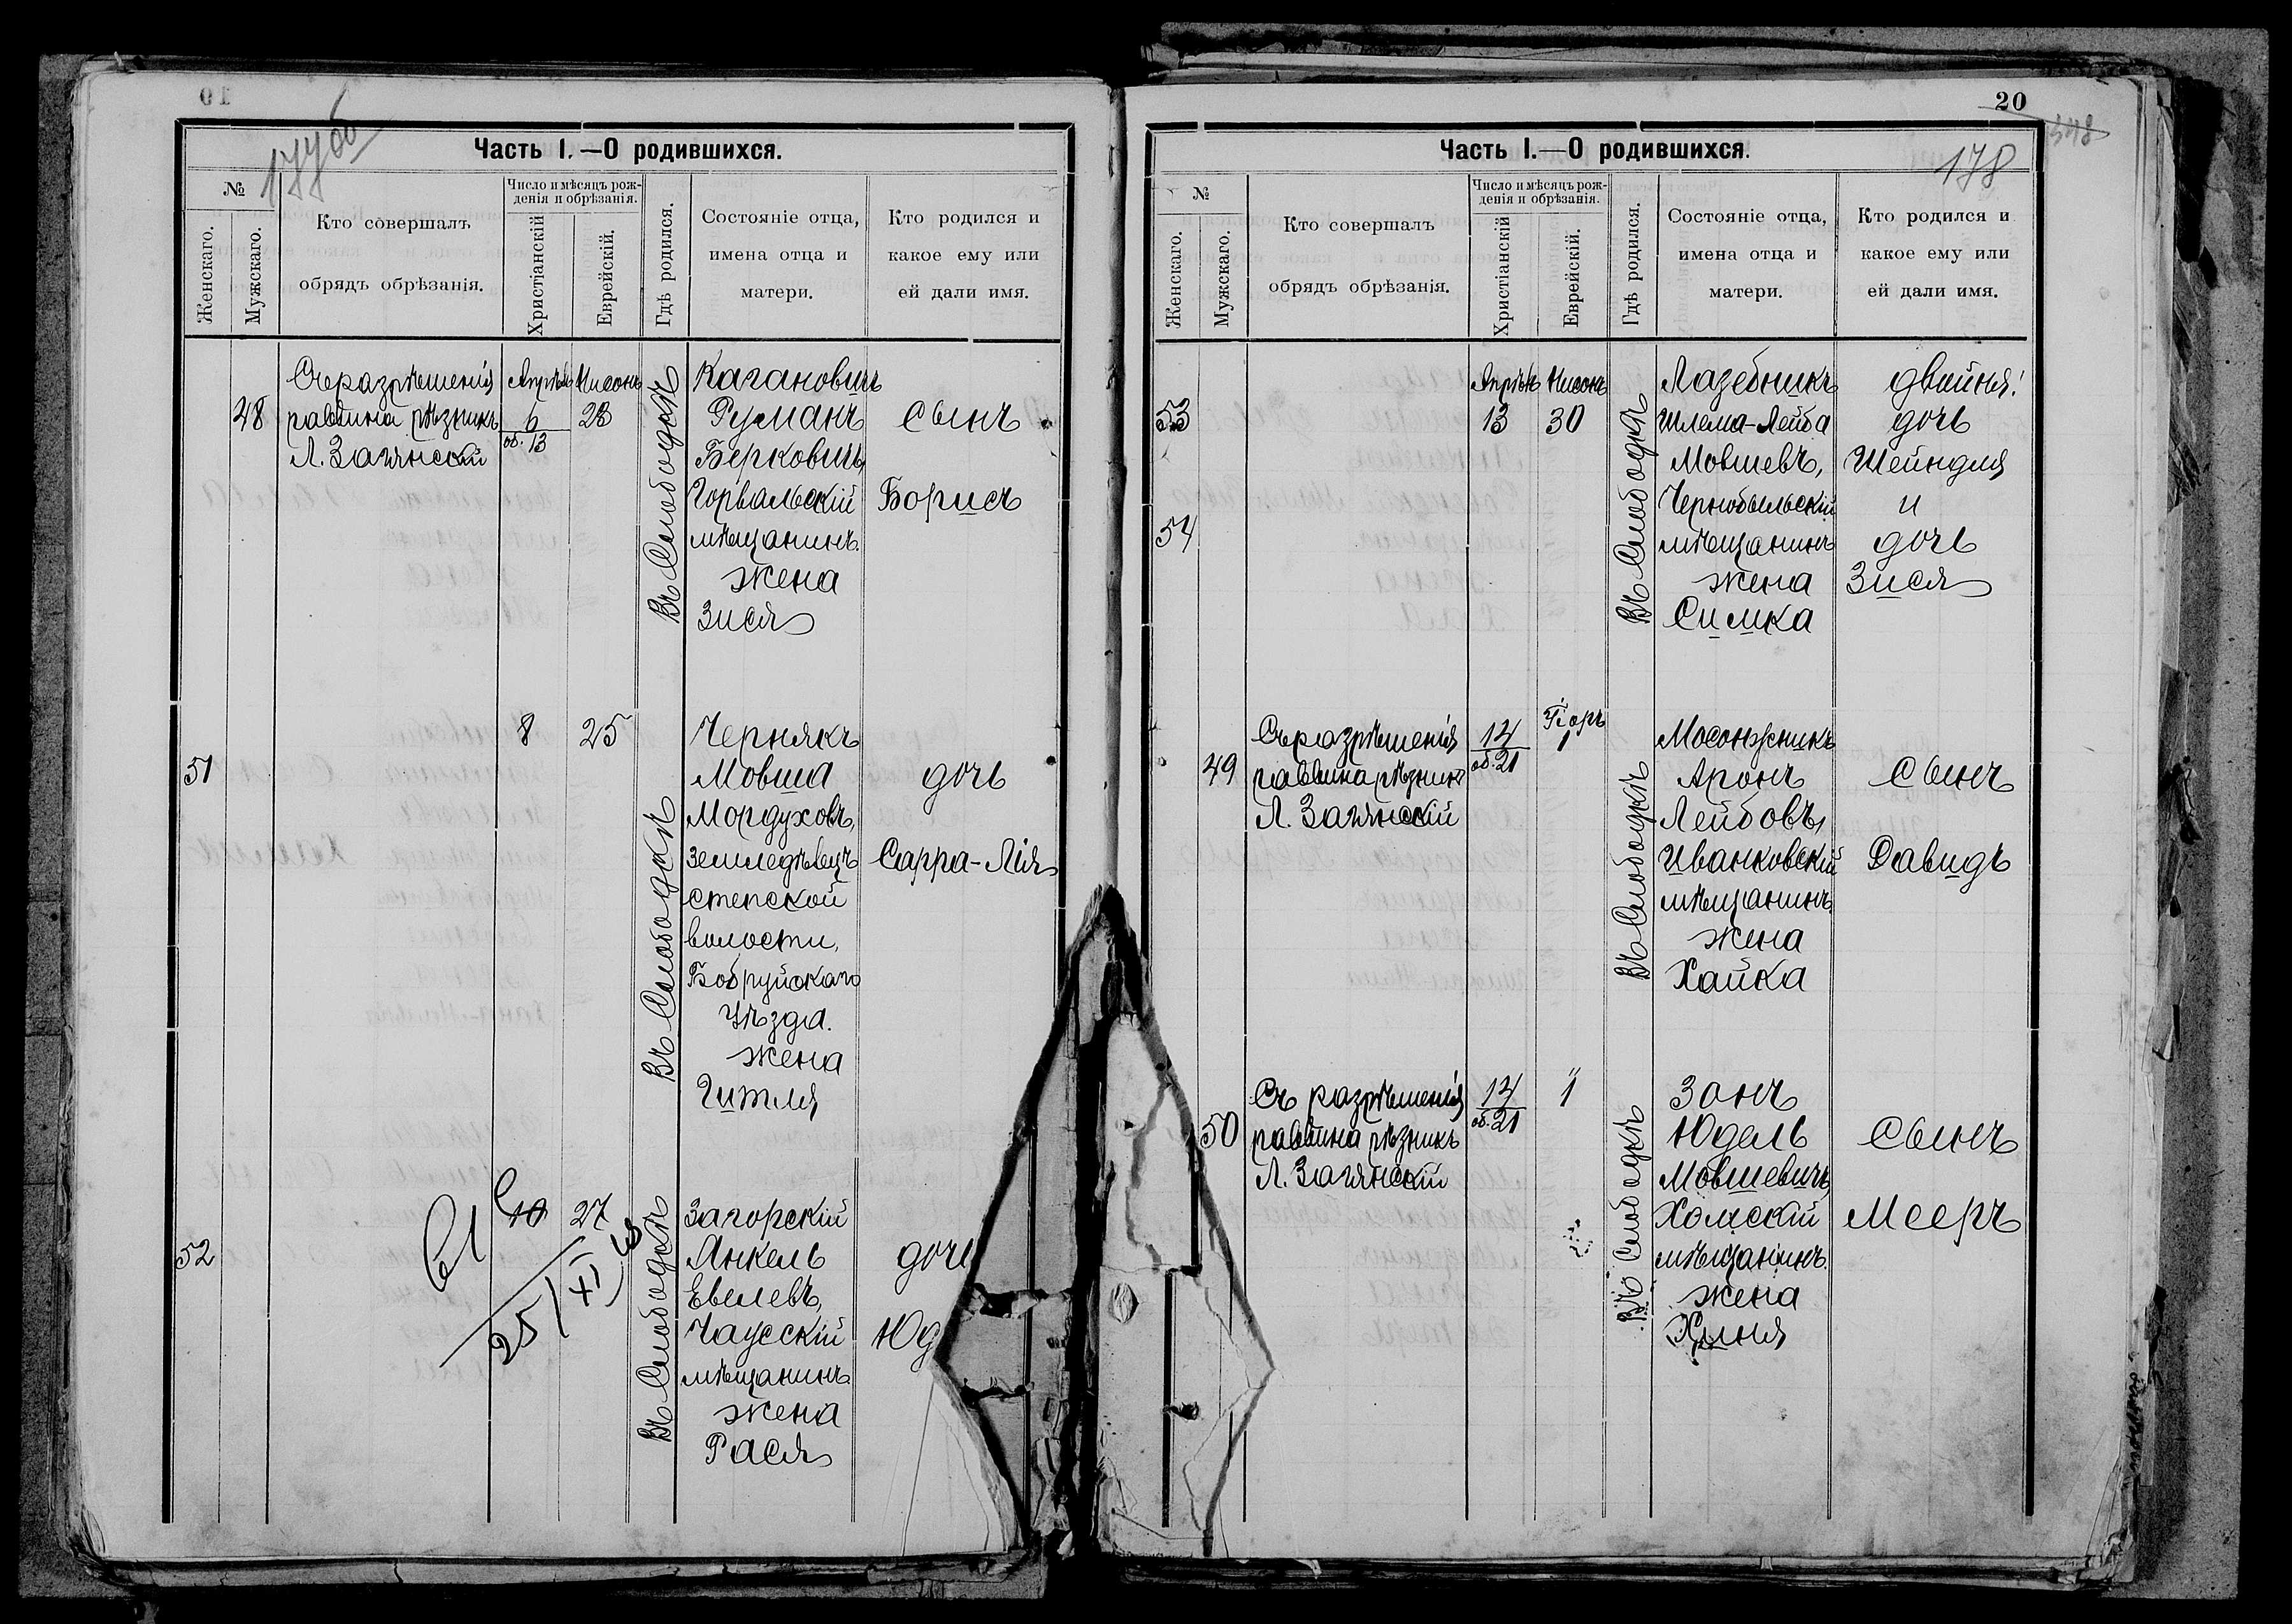 177 об
Часть I.—О родившихся.
№
Женскаго.
Мужскаго.
Кто совершалъ
обрядъ обрѣзанія.
Число и мѣсяцъ рож-
денія и обрѣзанія.
Христіанскій
Еврейскій.
Гдѣ родился.
Состояніе отца,
имена отца и
матери.
Кто родился и
какое ему или
ей дали имя.
48
Съ разрѣшенія
раввина рѣзникъ
Л. Загянскій
Апрѣль
6
об. 13
Нисонъ
23
Въ Слободкѣ
Кагановичъ
Руманъ
Берковичъ,
Горвальскій
мѣщанинъ.
жена
Зися
сынъ
Борисъ
51
8
25
Въ Слободкѣ
Чернякъ
Мовша
Мордуховъ,
земледѣлецъ
степской
волости,
Бобруйскаго
уѣзда.
жена
Гитля
дочь
Сарра-Лія
52
10
27
25/XI
Въ Слободкѣ
Загорскій
Янкель
Евелевъ,
Чаусскій
мѣщанинъ.
жена
Рася
дочь
Юд
20
178
Часть I.—О родившихся.
№
Женскаго.
Мужскаго.
Кто совершалъ
обрядъ обрѣзанія.
Число и мѣсяцъ рож-
денія и обрѣзанія.
Христіанскій
Еврейскій.
Гдѣ родился.
Состояніе отца,
имена отца и
матери.
Кто родился и
какое ему или
ей дали имя.
53
54
Апрѣль
13
Нисонъ
30
Въ Слободкѣ
Лазебникъ
Шлема-Лейба
Мовшевъ,
Чернобыльскій
мѣщанинъ
жена
Симка
двойня:
дочь
Шейндля
и
дочь
Зися
49
Съ разрѣшенія
раввина рѣзникъ
Л. Загянскій
14
об. 21
Іоръ
1
Въ Слободкѣ
Мосонжникъ
Аронъ
Лейбовъ,
Иванковскій
мѣщанинъ.
жена
Хайка
сынъ
Давидъ
50
Съ разрѣшенія
раввина рѣзникъ
Л. Загянскій
14
об. 21
"
1
Въ Слободкѣ
Зонъ
Юдель
Мовшевичъ,
Холмскій
мѣщанинъ.
жена
Хиня
сынъ
Мееръ